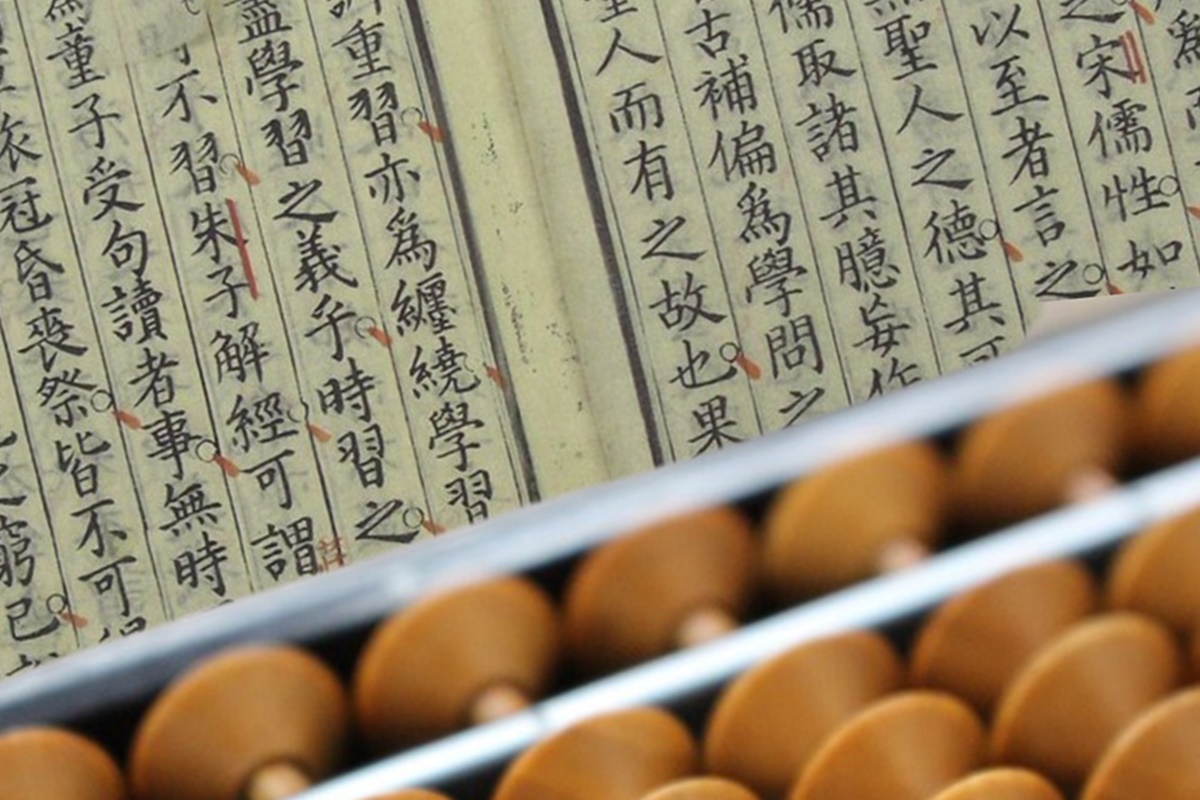 為
之宋儒性如
以至者言之
聖人之德其可
儒取諸其臆妄作
古補偏為學問之
聖人而有之故也果
重習亦為纏繞學習
學習之義乎時習之
不習朱子解經可謂
童子受句讀者事無時
衣冠昏喪祭皆不可
窮已